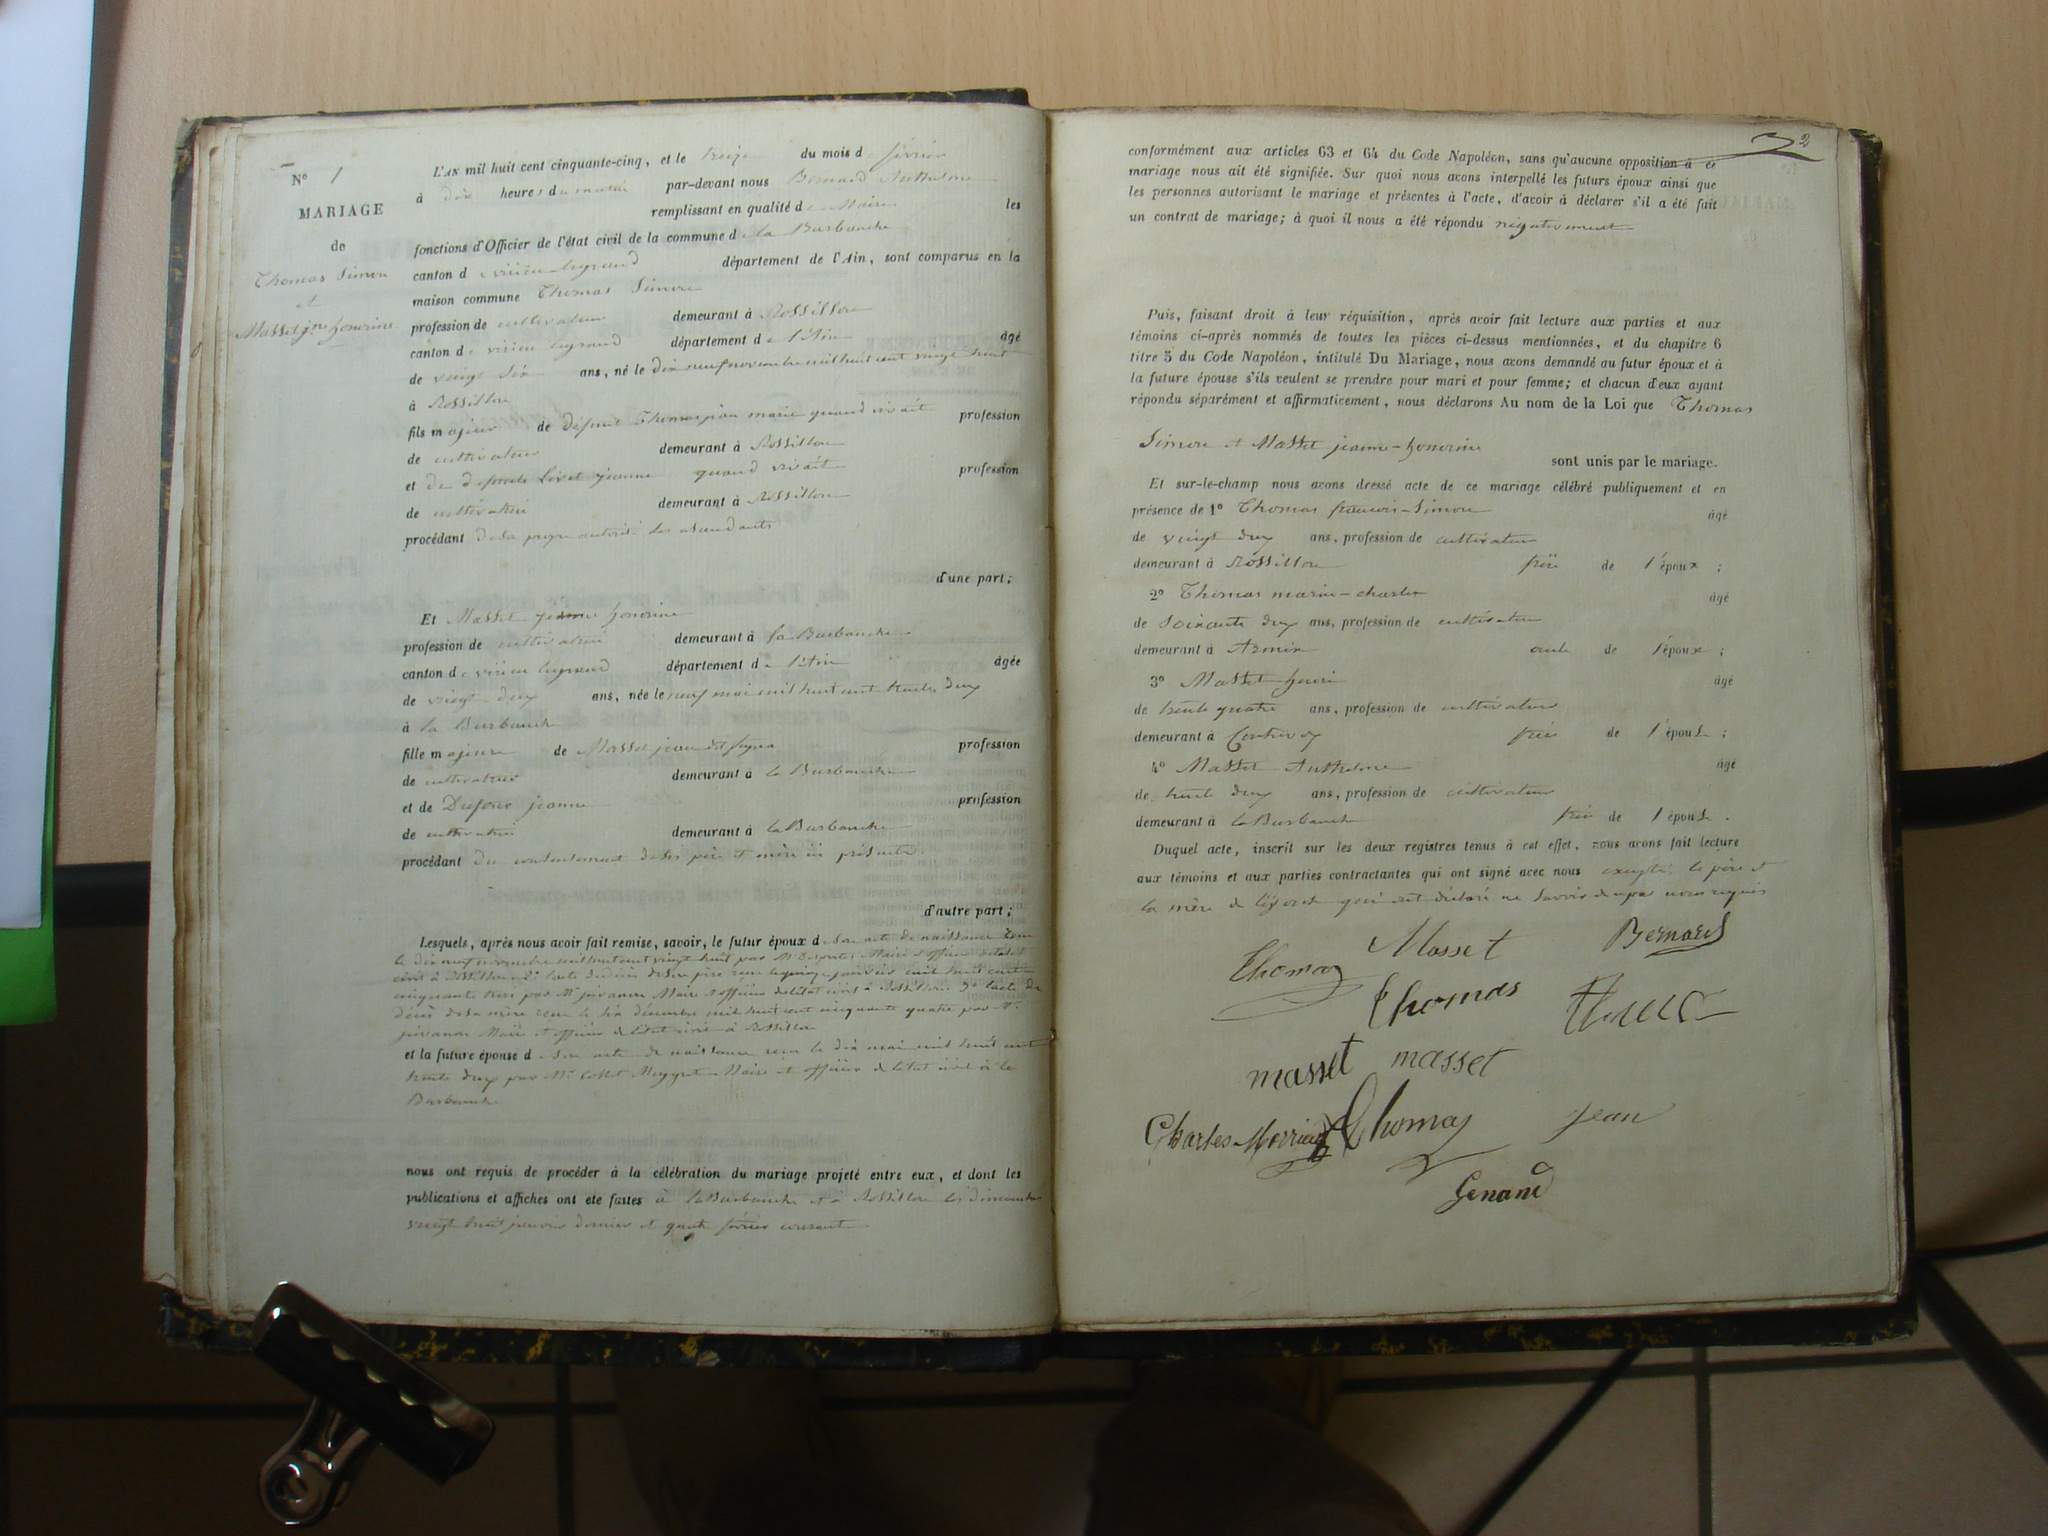 N° 1
MARIAGE
de
Thomas Simon
et
Masset jne honorine
L'AN mil huit cent cinquante-cinq, et le treize du mois de février
à dix heures du matin par-devant nous Bernard Anthelme
remplissant en qualité de Maire les
fonctions d'Officier de l'état civil de la commune de la Burbanche
canton de virieu legrand département de l'Ain, sont comparus en la
maison commune Thomas Simon
profession de cultivateur demeurant à Rossillon
canton de virieu legrand département de l'Ain âgé
de vingt six ans, né le dix neuf novembre mil huit cent vingt huit
à Rossillon
fils majeur de défunt Thomas jean marie quand vivait profession
de cultivateur demeurant à Rossillon
et de défunte Livet jeanne quand vivait profession
de cultivatrice demeurant à Rossillon
procédant de sa propre autorité
d'une part;
Et Masset jeanne honorine
profession de cultivatrice demeurant à la Burbanche
canton de virieu legrand département de l'Ain âgée
de vingt deux ans, née le neuf mai mil huit cent trente deux
à la Burbanche
fille majeure de Masset jean dit profession
de cultivateur demeurant à la Burbanche
et de Dufour jeanne profession
de cultivatrice demeurant à la Burbanche
procédant du consentement de ses père et mère ici présents
d'autre part;
Lesquels, après nous avoir fait remise, savoir, le futur époux de son acte de naissance reçu
le dix neuf novembre mil huit cent vingt huit par Mr Maire et officier de l'état
civil à Rossillon 2° l'acte de décès de son père reçu le janvier mil huit cent
cinquante trois par Mr Maire et officier de l'état civil à Rossillon 3° l'acte de
décès de sa mère reçu le six décembre mil huit cent cinquante quatre par Mr
Maire et officier de l'état civil à Rossillon
et la future épouse de son acte de naissance reçu le dix mai mil huit cent
trente deux par Mr Maire et officier de l'état civil à la
Burbanche
nous ont requis de procéder à la célébration du mariage projeté entre eux, et dont les
publications et affiches ont été faites à la Burbanche et à Rossillon les dimanches
vingt huit janvier dernier et quatre février courant
2
conformément aux articles 63 et 64 du Code Napoléon, sans qu'aucune opposition à ce
mariage nous ait été signifiée. Sur quoi nous avons interpellé les futurs époux ainsi que
les personnes autorisant le mariage et présentes à l'acte, d'avoir à déclarer s'il a été fait
un contrat de mariage; à quoi il nous a été répondu négativement
Puis, faisant droit à leur réquisition, après avoir fait lecture aux parties et aux
témoins ci-après nommés de toutes les pièces ci-dessus mentionnées, et du chapitre 6
titre 5 du Code Napoléon, intitulé Du Mariage, nous avons demandé au futur époux et à
la future épouse s'ils veulent se prendre pour mari et pour femme; et chacun d'eux ayant
répondu séparément et affirmativement, nous déclarons Au nom de la Loi que Thomas
Simon et Masset jeanne-honorine
sont unis par le mariage.
Et sur-le-champ nous avons dressé acte de ce mariage célébré publiquement et en
présence de 1° Thomas francois-Simon âgé
de vingt deux ans, profession de cultivateur
demeurant à Rossillon frère de l'époux ;
2° Thomas marin-charles âgé
de soixante deux ans, profession de cultivateur
demeurant à Armix oncle de l'époux ;
3° Masset henri âgé
de trente quatre ans, profession de cultivateur
demeurant à Contrevoz frère de l'épouse ;
4° Masset Anthelme âgé
de trente deux ans, profession de cultivateur
demeurant à la Burbanche frère de l'épouse .
Duquel acte, inscrit sur les deux registres tenus à cet effet, nous avons fait lecture
aux témoins et aux parties contractantes qui ont signé avec nous excepté le père et
la mère de l'épouse qui ont déclaré ne savoir de ce requis
Thomas Masset Bernard
Thomas
masset masset
Charles Thomas jean
Genand